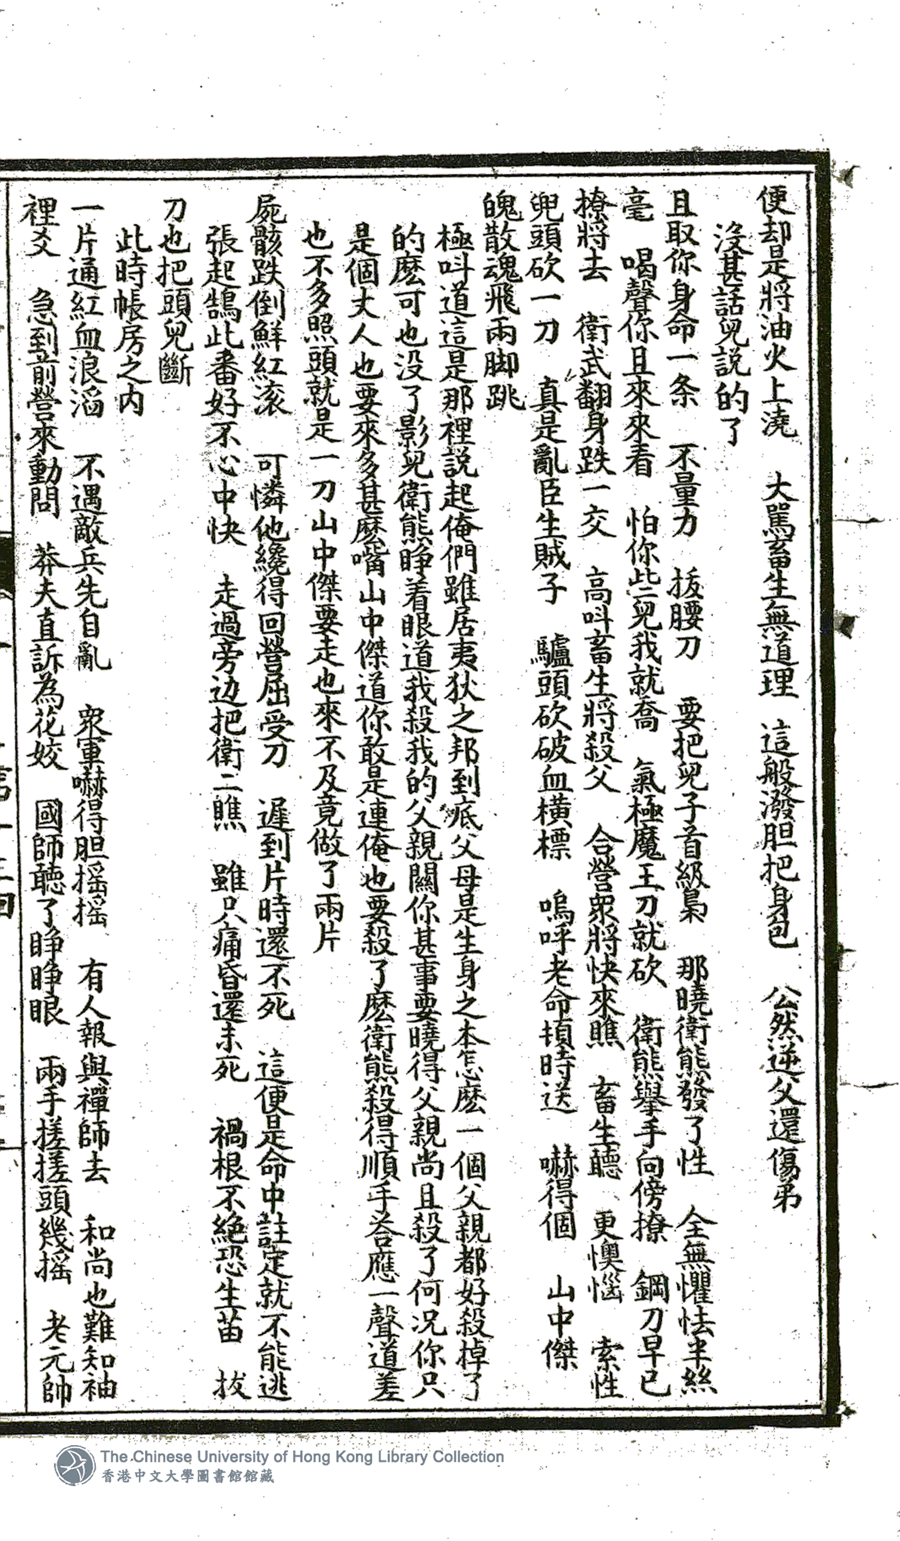 便却是將油火上澆　大駡畜生無道理　這般潑胆把身包　公然逆父還傷弟
沒甚話兒説的了
且取你身命一条　不量力　拔腰刀　要把兒子首級梟　那曉衛熊發了性　全無懼怯半絲
毫　喝聲你且來來看　怕你些兒我就喬　氣極魔王刀就砍　衛熊舉手向傍撩　鋼刀早已
撩將去　衛武翻身跌一交　高呌畜生將殺父　合營衆將快來瞧　畜生聽　更懊惱　索性
兜頭砍一刀　真是亂臣生賊子　驢頭砍破血橫標　嗚呼老命頃時送　嚇得個　山中傑
魄散魂飛兩脚跳
極呌道這是那裡説起俺們雖居夷狄之邦到底父母是生身之本怎麽一個父親都好殺掉了
的麽可也没了影兒衛熊睁着眼道我殺我的父親關你甚事要曉得父親尚且殺了何况你只
是個丈人也要來多甚麽嘴山中傑道你敢是連俺也要殺了麽衛熊殺得順手荅應一聲道差
也不多照頭就是一刀山中傑要走也來不及竟做了兩片
屍骸跌倒鮮紅滚　可憐他纔得回營屈受刀　遲到片時還不死　這便是命中註定就不能逃
張起鵠此番好不心中快　走過旁边把衛二瞧　雖只痛昏還未死　禍根不絶恐生苗　拔
刀也把頭兒斷
此時帳房之内
一片通紅血浪滔　不遇敵兵先自亂　衆軍嚇得胆摇摇　有人報與禪師去　和尚也難知袖
裡爻　急到前營來動問　莽夫直訴為花姣　國師聽了睁睁眼　兩手搓搓頭幾摇　老元帥
The Chinese University of Hong Kong Library Collection
香港中文大學圖書館館藏